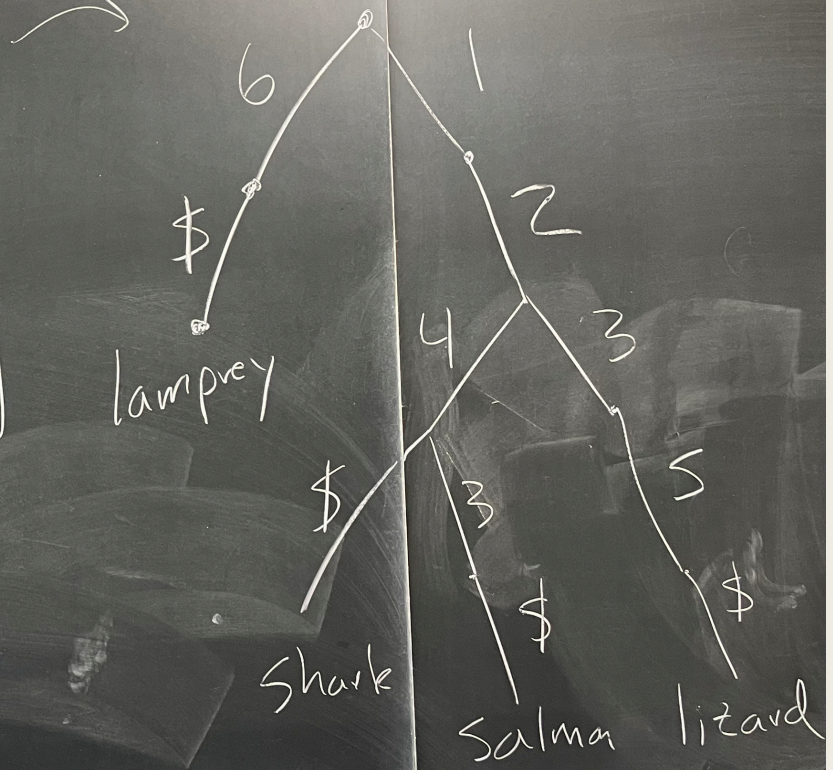 6 1
$ 2
4 3
lamprey
$ 3 5
$ $
shark
salmon lizard